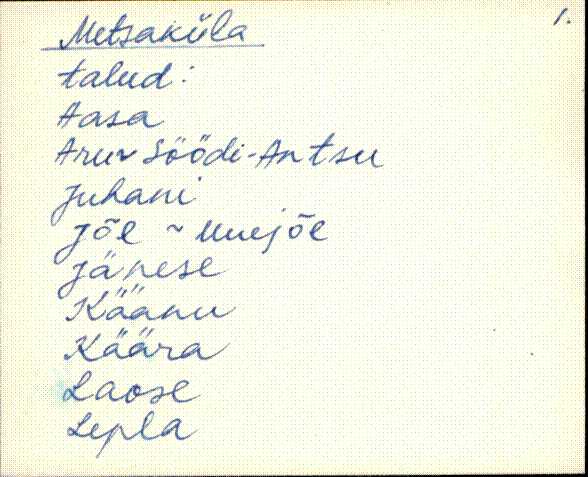 1.
Metsaküla
talud:
Aasa
Aru ~ Söödi-Antsu
Juhani
Jõe ~ Uuejõe
Jänese
Käänu
Käära
Laose
Lepla